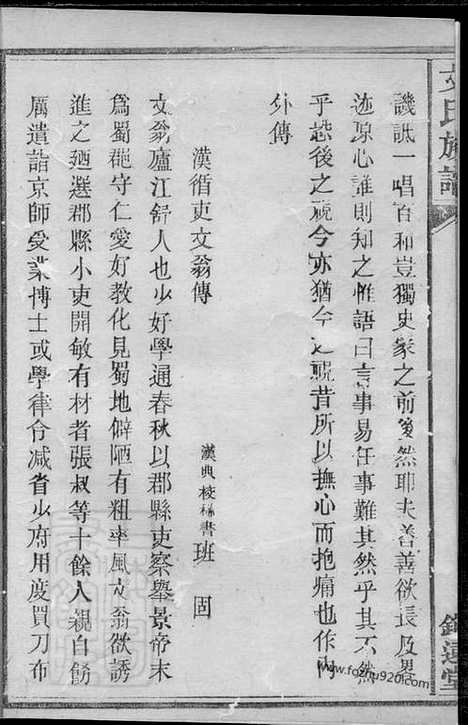 文氏族譜
譏詆一唱百和豈獨史家之前後然耶夫善善欲長及畧
迹原心誰則知之惟語曰言事易任事難其然乎其不然
乎恐後之視今亦猶今之視昔所以撫心而抱痛也作內
外傳
漢循吏文翁傳
漢典校秘書班 固
文翁廬江舒人也少好學通春秋以郡縣吏察舉景帝末
爲蜀郡守仁愛好教化見蜀地僻陋有粗率風文翁欲誘
進之廼選郡縣小吏開敏有材者張叔等十餘人親自飭
厲遣詣京師受業博士或學律令减省少府用度買刀布
堂
www.fozhu920.com